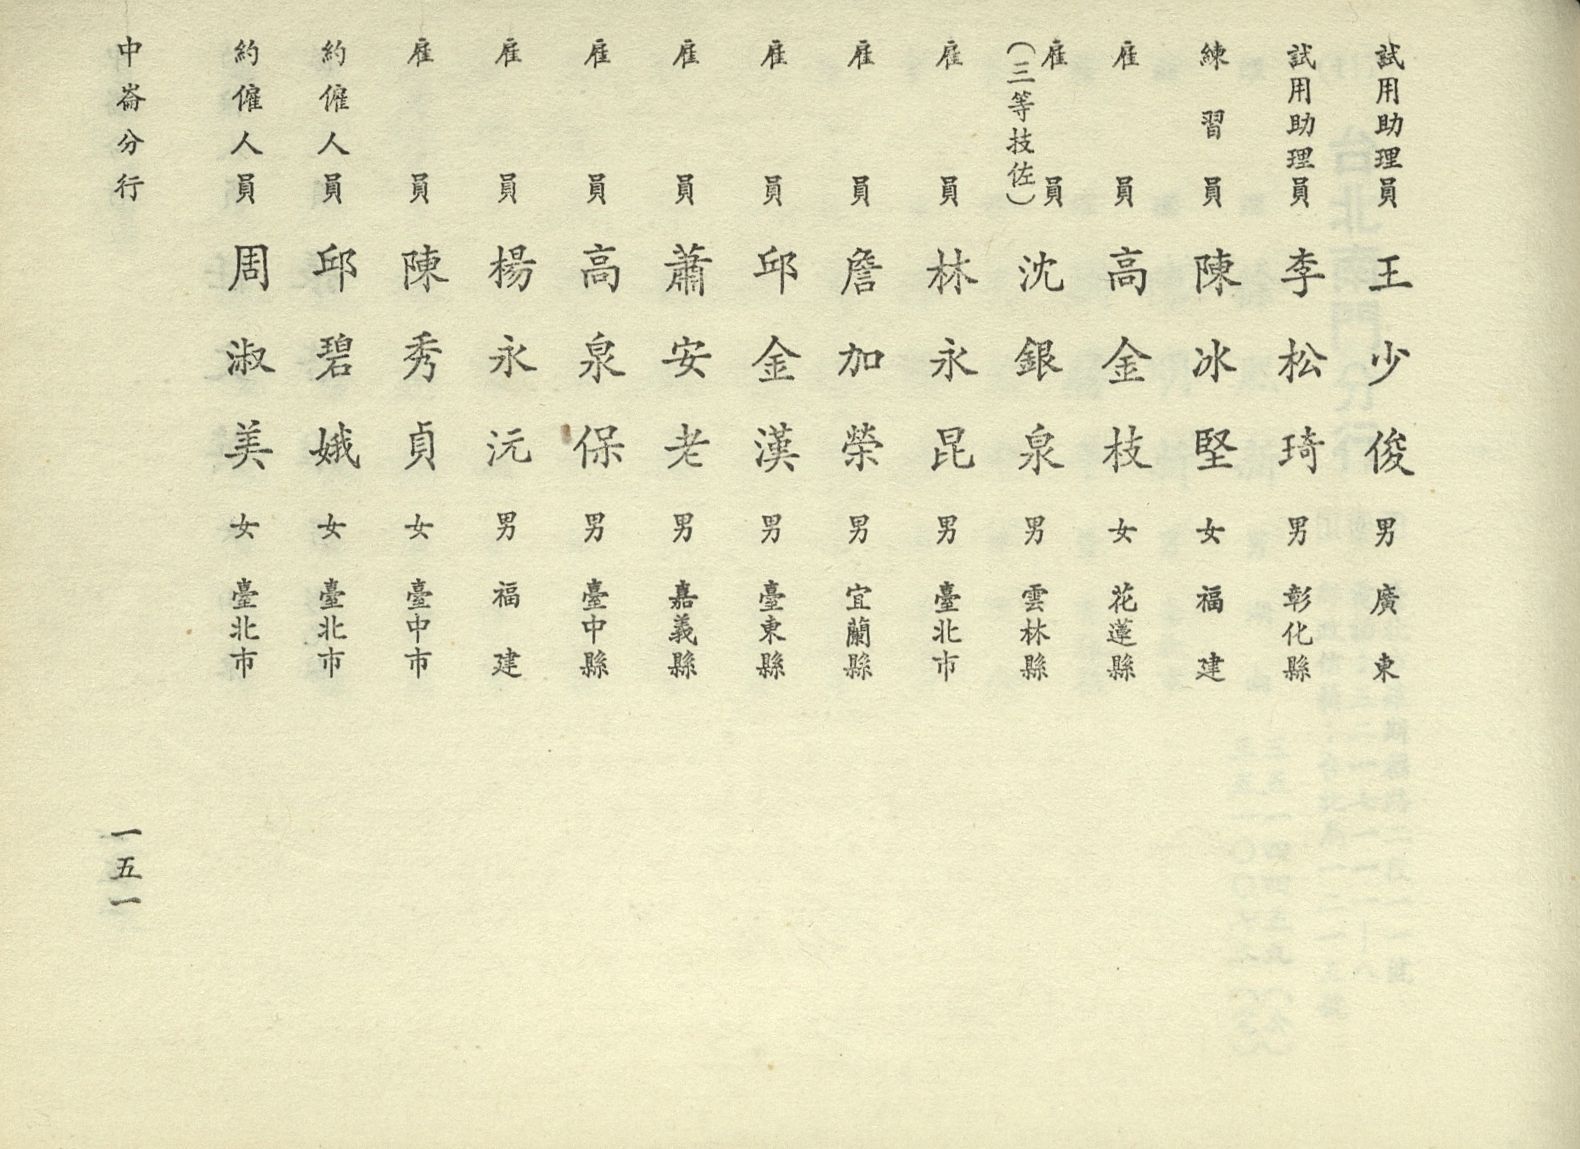 試用助理員 王少俊 男 廣東
試用助理員 李松琦 男 彰化縣
練習員 陳冰堅 女 福建
雇員 高金枝 女 花蓮縣
雇員(三等技佐) 沈銀泉 男 雲林縣
雇員 林永昆 男 臺北市
雇員 詹加榮 男 宜蘭縣
雇員 邱金漢 男 臺東縣
雇員 蕭安老 男 嘉義縣
雇員 高泉保 男 臺中縣
雇員 楊永沅 男 福建
雇員 陳秀貞 女 臺中市
約僱人員 邱碧娥 女 臺北市
約僱人員 周淑美 女 臺北市
中崙分行
一五一